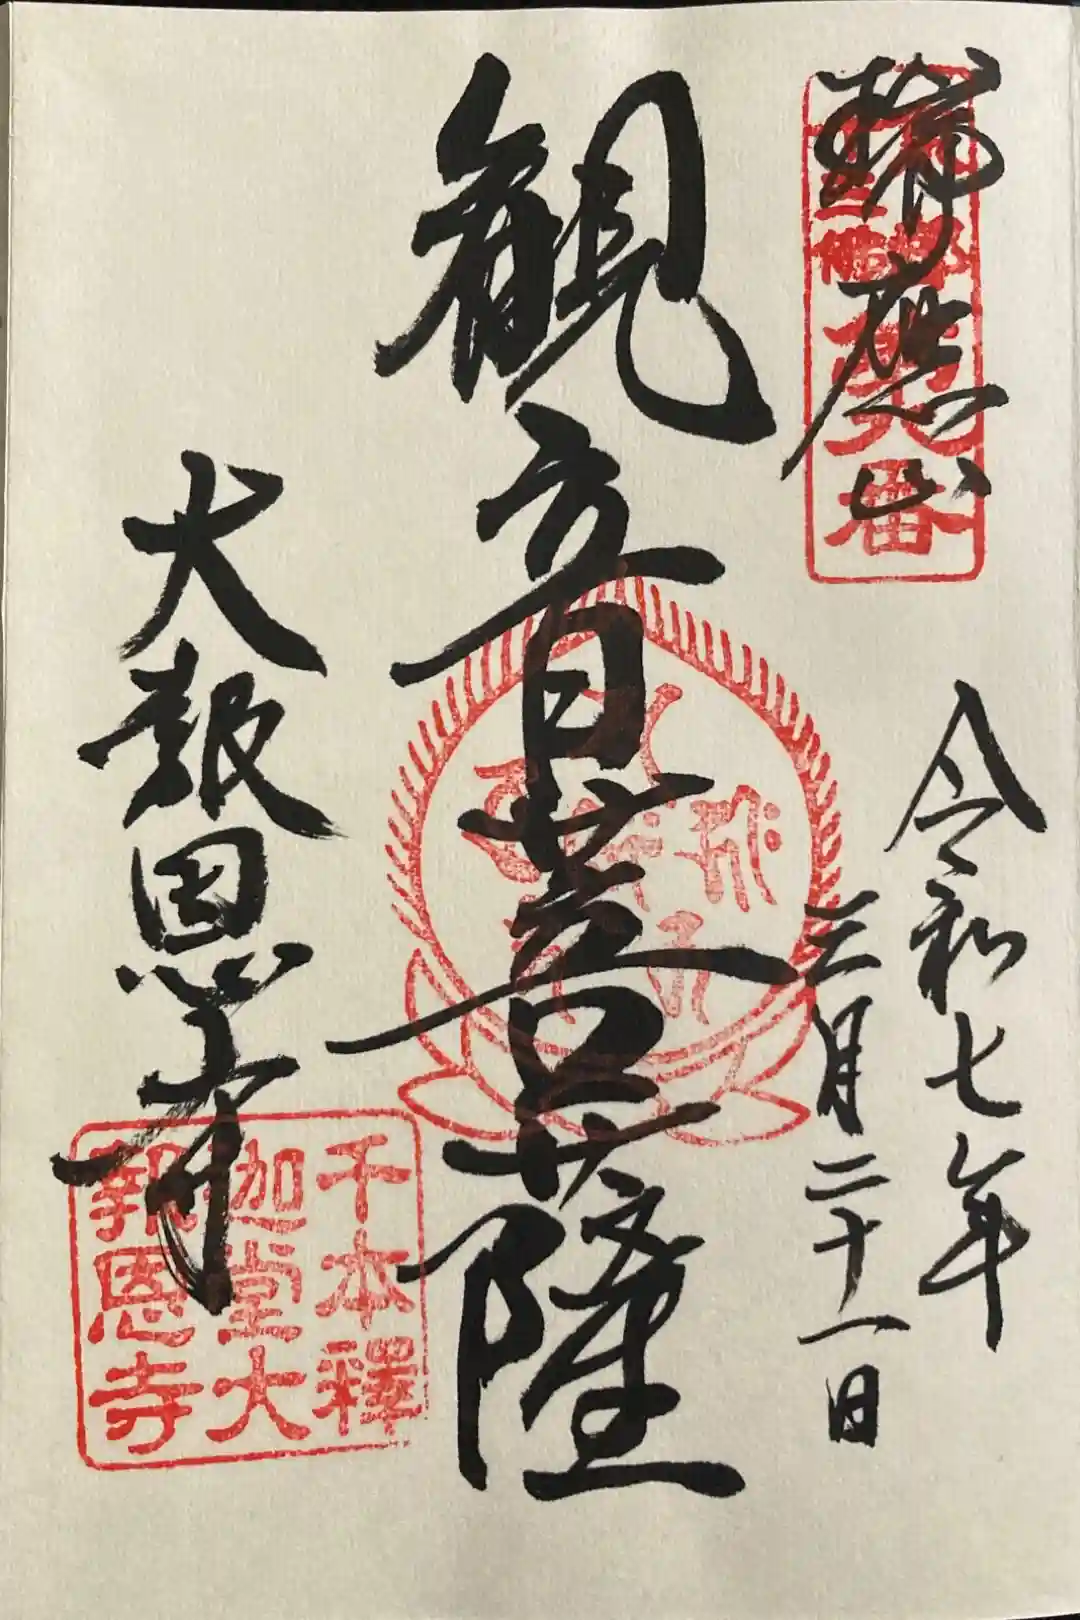 瑞應山
令和七年
三月二十一日
観音菩薩
大報恩寺
千本釋
迦堂大
報恩寺